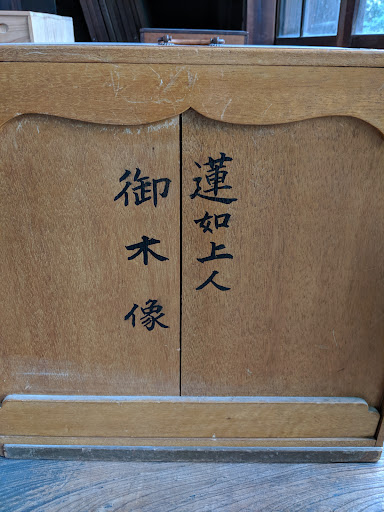 蓮如上人
御木像